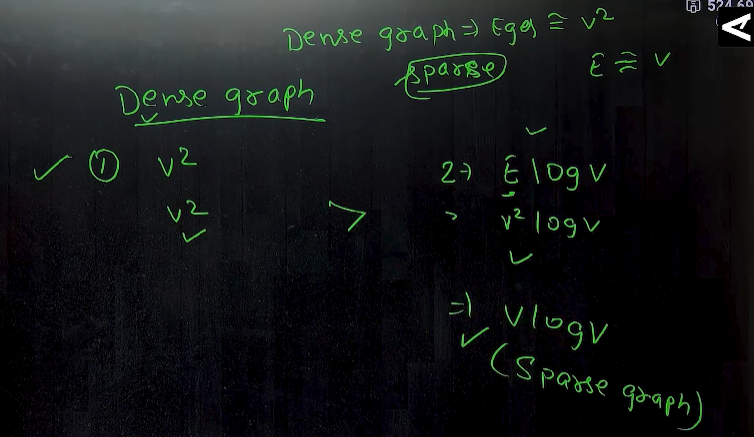 Dense graph ⇒ Eges ≅ V²
sparse E ≅ V
Dense graph
① V² 2→ E log V
V² > V² log V
⇒ V log V
(Sparse graph)